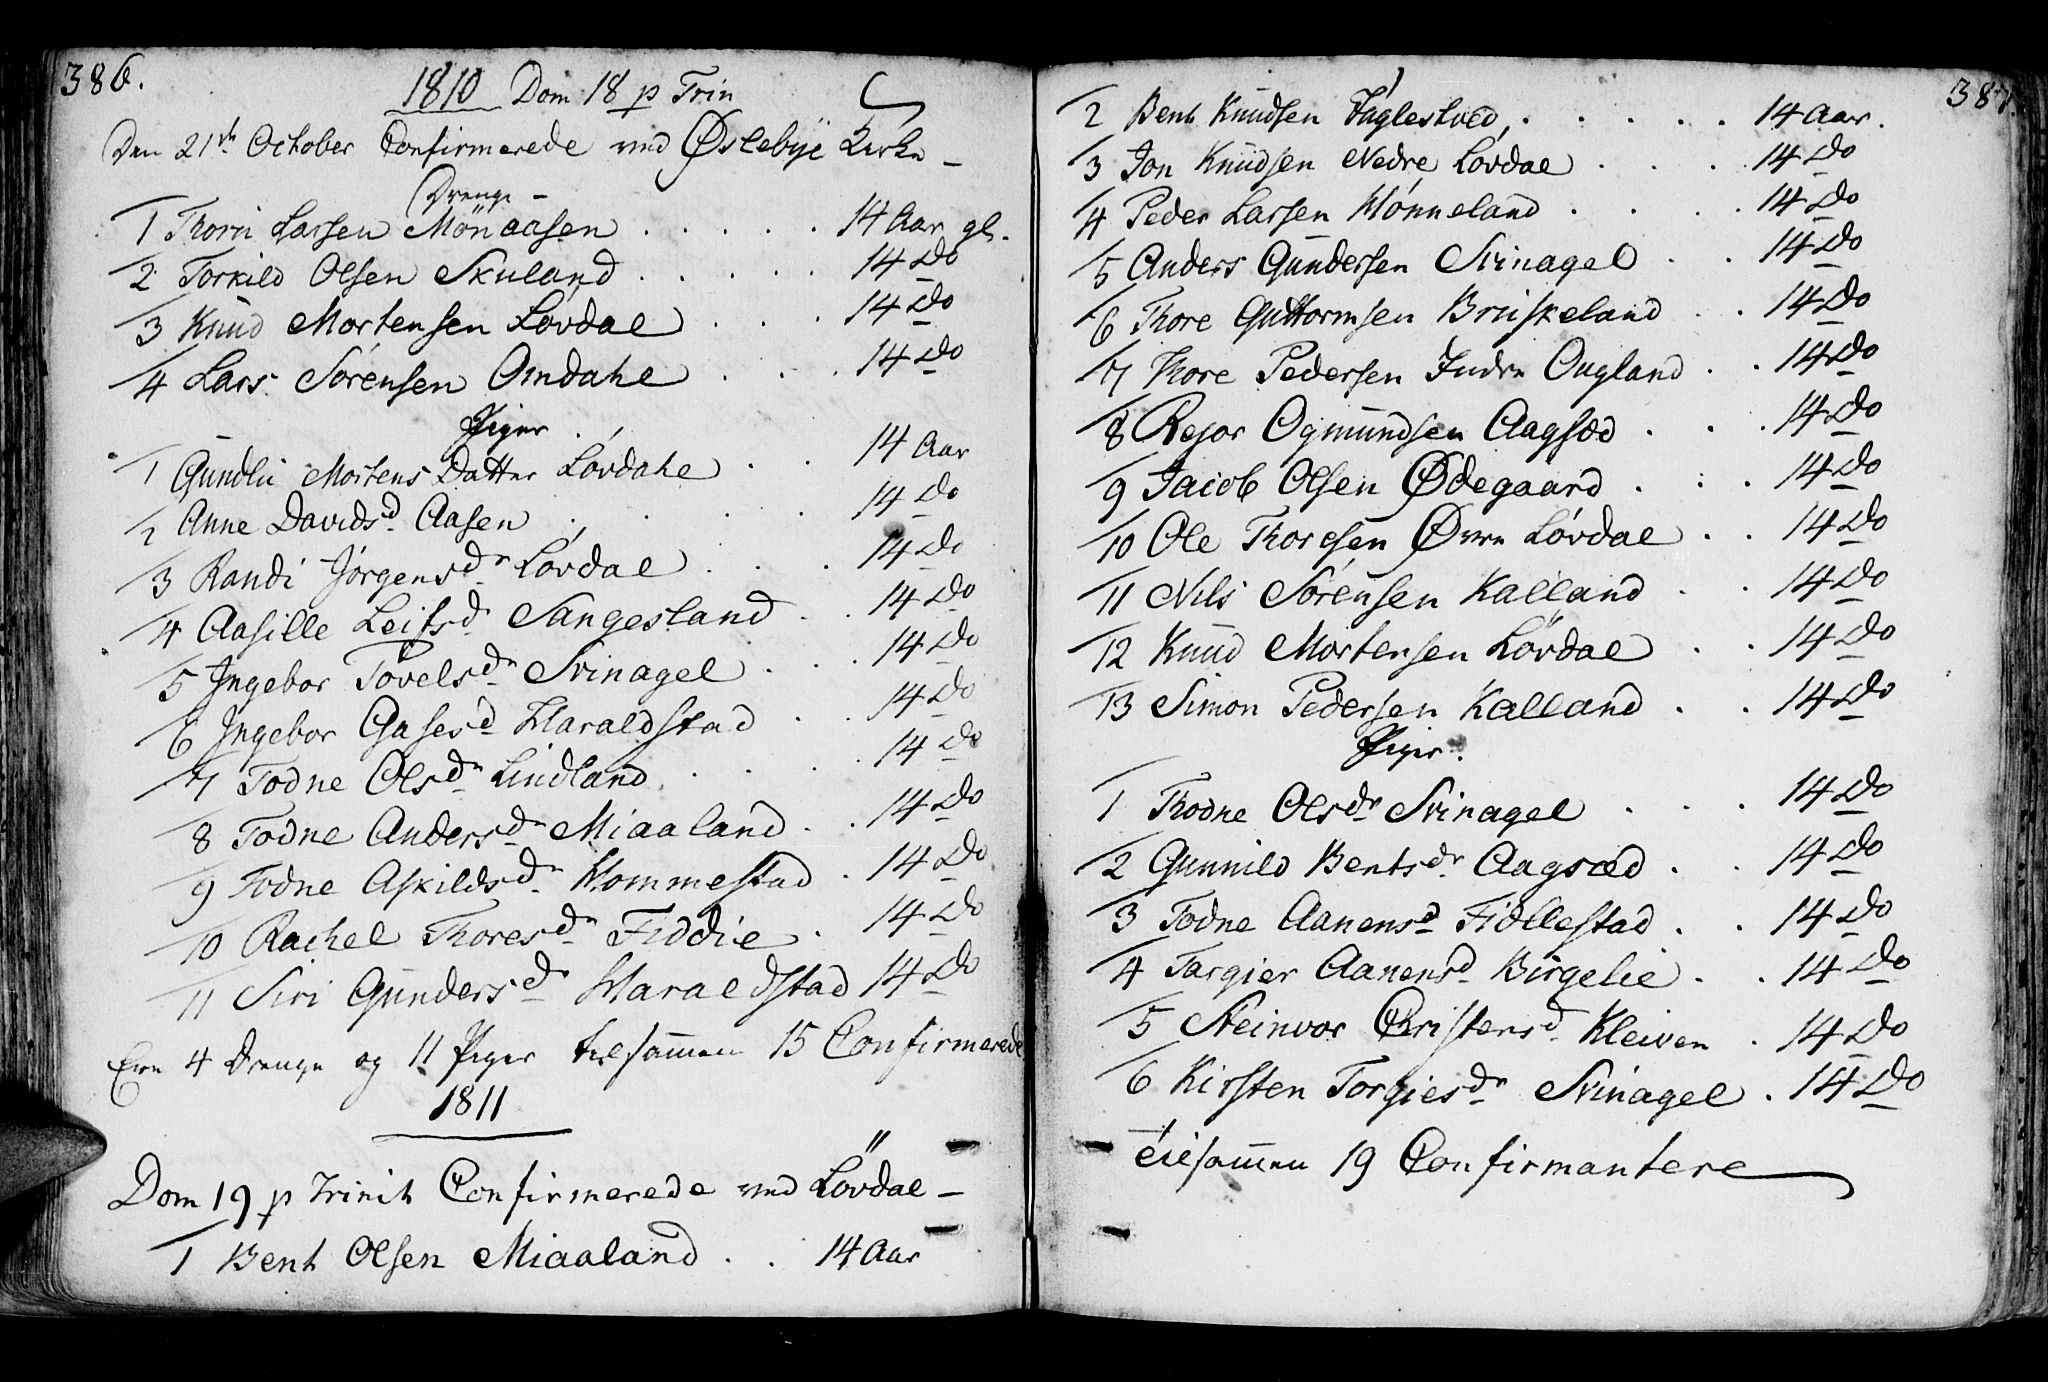 386.
1810 Dom 18 p Trin
Den 21de October Confirmerede ved Øslebye Kirke –
Drenge –
1 Thore Larsen Mönaasen . . . . . 14 Aar gl.
2 Torkild Olsen Skuland . . . . . 14 Do
3 Knud Mortensen Lövdal . . . 14 Do
4 Lars Sörensen Omdahl . . . 14 Do
Piger
1 Gundle Mortens Datter Lövdahl . . 14 Aar
2 Anne Davidsd. Aasen . . . . 14 Do
3 Randi Jörgensdr Lövdal . . . 14 Do
4 Aasille Leifsd. Sangesland . . 14 Do
5 Ingebor Povelsdr Svinagel . . . 14 Do
6 Ingebor Aasesd. Haraldstad . . 14 Do
7 Todne Olsdr Lindland . . . . 14 Do
8 Todne Andersdr Miaaland . . 14 Do
9 Todne Askildsdr Hommestad . 14 Do
10 Rachel Thoresdr Fiddie . 14 Do
11 Siri Gundersdr Haraldstad 14 Do
Ere 4 Drenge og 11 Piger tilsammen 15 Confirmerede
1811
Dom 19 p Trinit Confirmerede ved Lövdal –
1 Bent Olsen Miaaland . . 14 Aar
387.
2 Bent Knudsen Fuglestved . . . . . 14 Aar.
3 Jon Knudsen Nedre Lövdal . . . 14 Do
4 Peder Larsen Hönneland . . . . 14 Do
5 Anders Gundersen Svinagel . . 14 Do
6 Thore Guttormsen Bruskeland . . 14 Do
7 Thore Pedersen Indre Ougland . . 14 Do
8 Rejor Ogmundsen Aagsæd . . . 14 Do
9 Jacob Olsen Ødegaard . . . 14 Do
10 Ole Thoresen Øvre Lövdal . . 14 Do
11 Nils Sörensen Kalland . . 14 Do
12 Knud Mortensen Lövdal . . 14 Do
13 Simon Pedersen Kalland . . 14 Do
Piger.
1 Thodne Olsdr Svinagel . . . 14 Do
2 Gunnild Bentsdr Aagsæd . . 14 Do
3 Todne Aanensd. Fidllestad . . 14 Do
4 Targier Aanensd. Birgelie . . 14 Do
5 Steinvor Christensd. Kleiven . 14 Do
6 Kirsten Torgiesdr Svinagel . 14 Do
tilsammen 19 Confirmantere